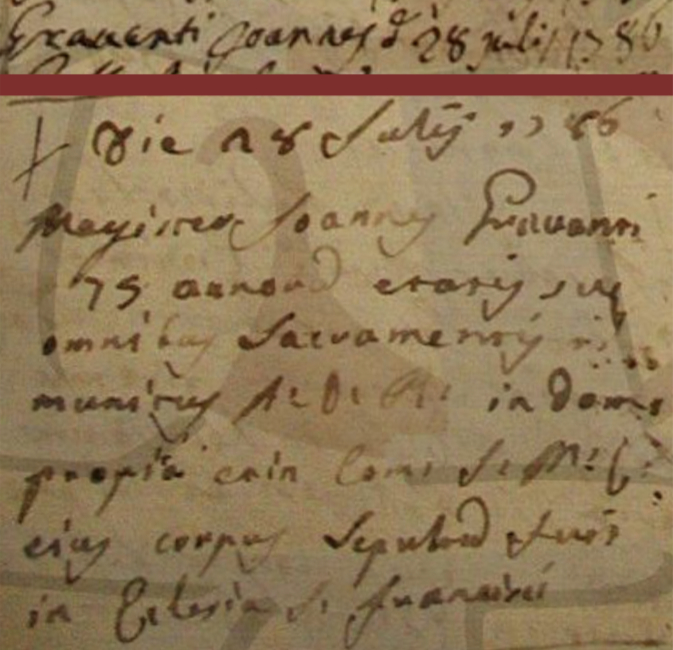 Gravanti Joannes d. 28 julii 1786
Die 28 Julij 1786
Magister Joannes Gravanti
75 annorum etatis sue
omnibus Sacramentis
munitus A: D: R: in Domo
propria in Com: S: M: E:
eius corpus Sepultum fuit
in Eclesia S. Francisci